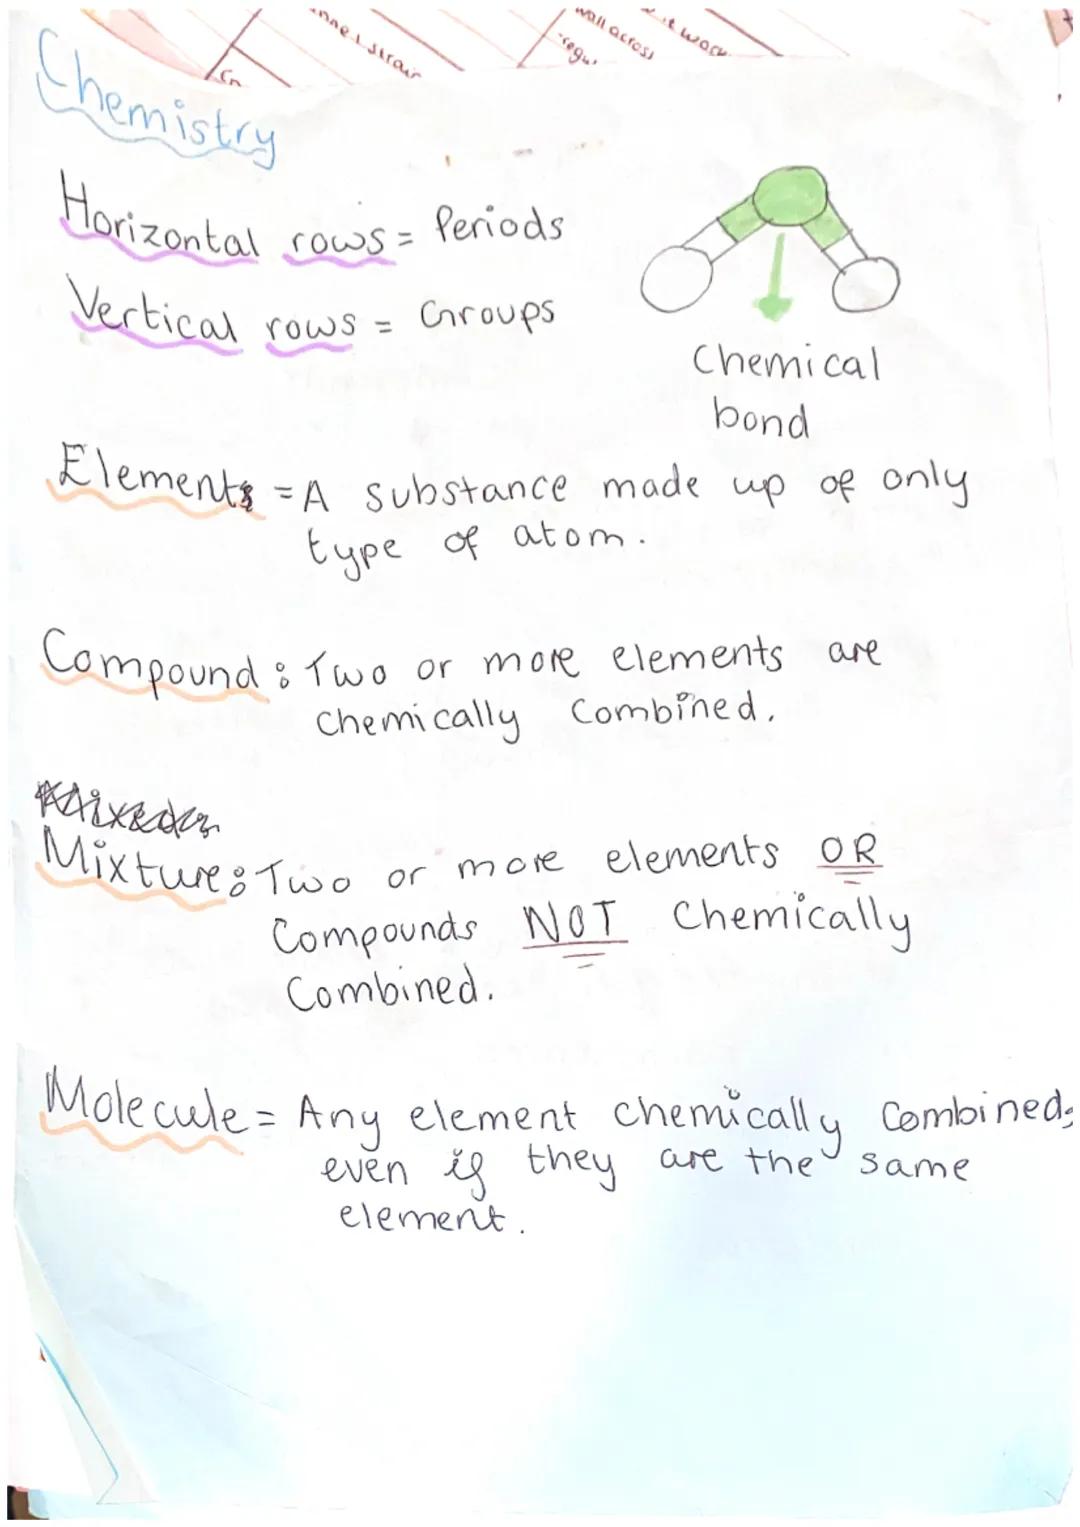 inner strair
wall across
it work
Chemistry
Horizontal rows = Periods
Vertical rows = Groups
Chemical
bond
Elements = A substance made up of only
type of atom.
Compound : Two or more elements are
Chemically Combined.
Mixture : Two or more elements OR
Compounds NOT Chemically
Combined.
Molecule = Any element chemically Combined,
even if they are the same
element.